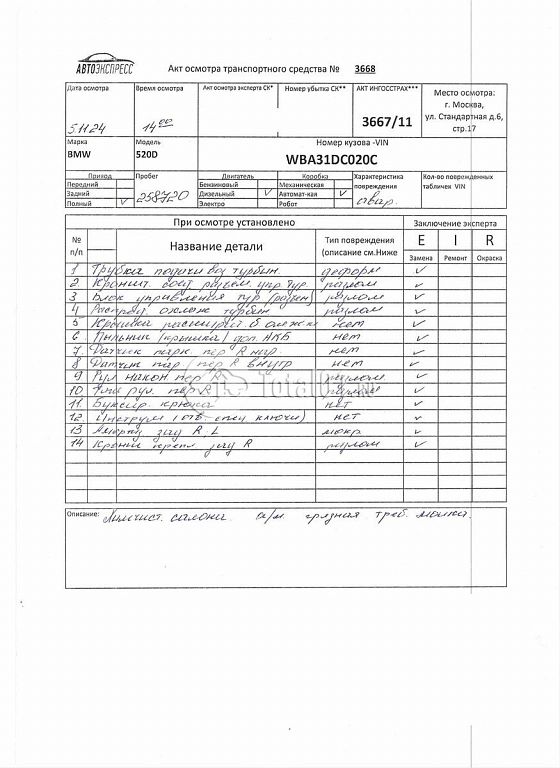 АВТОЭКСПРЕСС
Акт осмотра транспортного средства № 3668
Дата осмотра Время осмотра Акт осмотра эксперта СК* Номер убытка СК** АКТ ИНГОССТРАХ*** Место осмотра:
г. Москва,
ул. Стандартная д.6,
стр.17
5.11.24 14 00 3667/11
Марка Модель Номер кузова -VIN
BMW 520D WBA31DC020C
Привод Пробег Двигатель Коробка Характеристика повреждения Кол-во поврежденных табличек VIN
Передний Бензиновый Механическая
Задний 258720 Дизельный V Автомат-кая V авар.
Полный V Электро Робот
При осмотре установлено Заключение эксперта
№ п/п Название детали Тип повреждения (описание см.Ниже E I R
Замена Ремонт Окраска
1 Трубка подачи турбин деформ ✓
2 Кроншт. разъем. упр. тур. разлом ✓
3 Блок управления тур (разъем) разлом ✓
4 охлаж турбин разлом ✓
5 Крышка расширит. б. нет ✓
6 Пыльник (крышка) доп. АКБ нет ✓
7 Датчик парк. пер R нар нет ✓
8 Датчик пар пер R внутр нет ✓
9 Рул након пер R разлом ✓
10 рул. пер R разлом ✓
11 Буксир. крюка нет ✓
12 Инструм (отв. спец. ключи) нет ✓
13 Аморт зад R L мокр. ✓
14 Кроншт крепл зад R разлом ✓
Описание: Химчист. салона. а/м грязная треб. мойка.